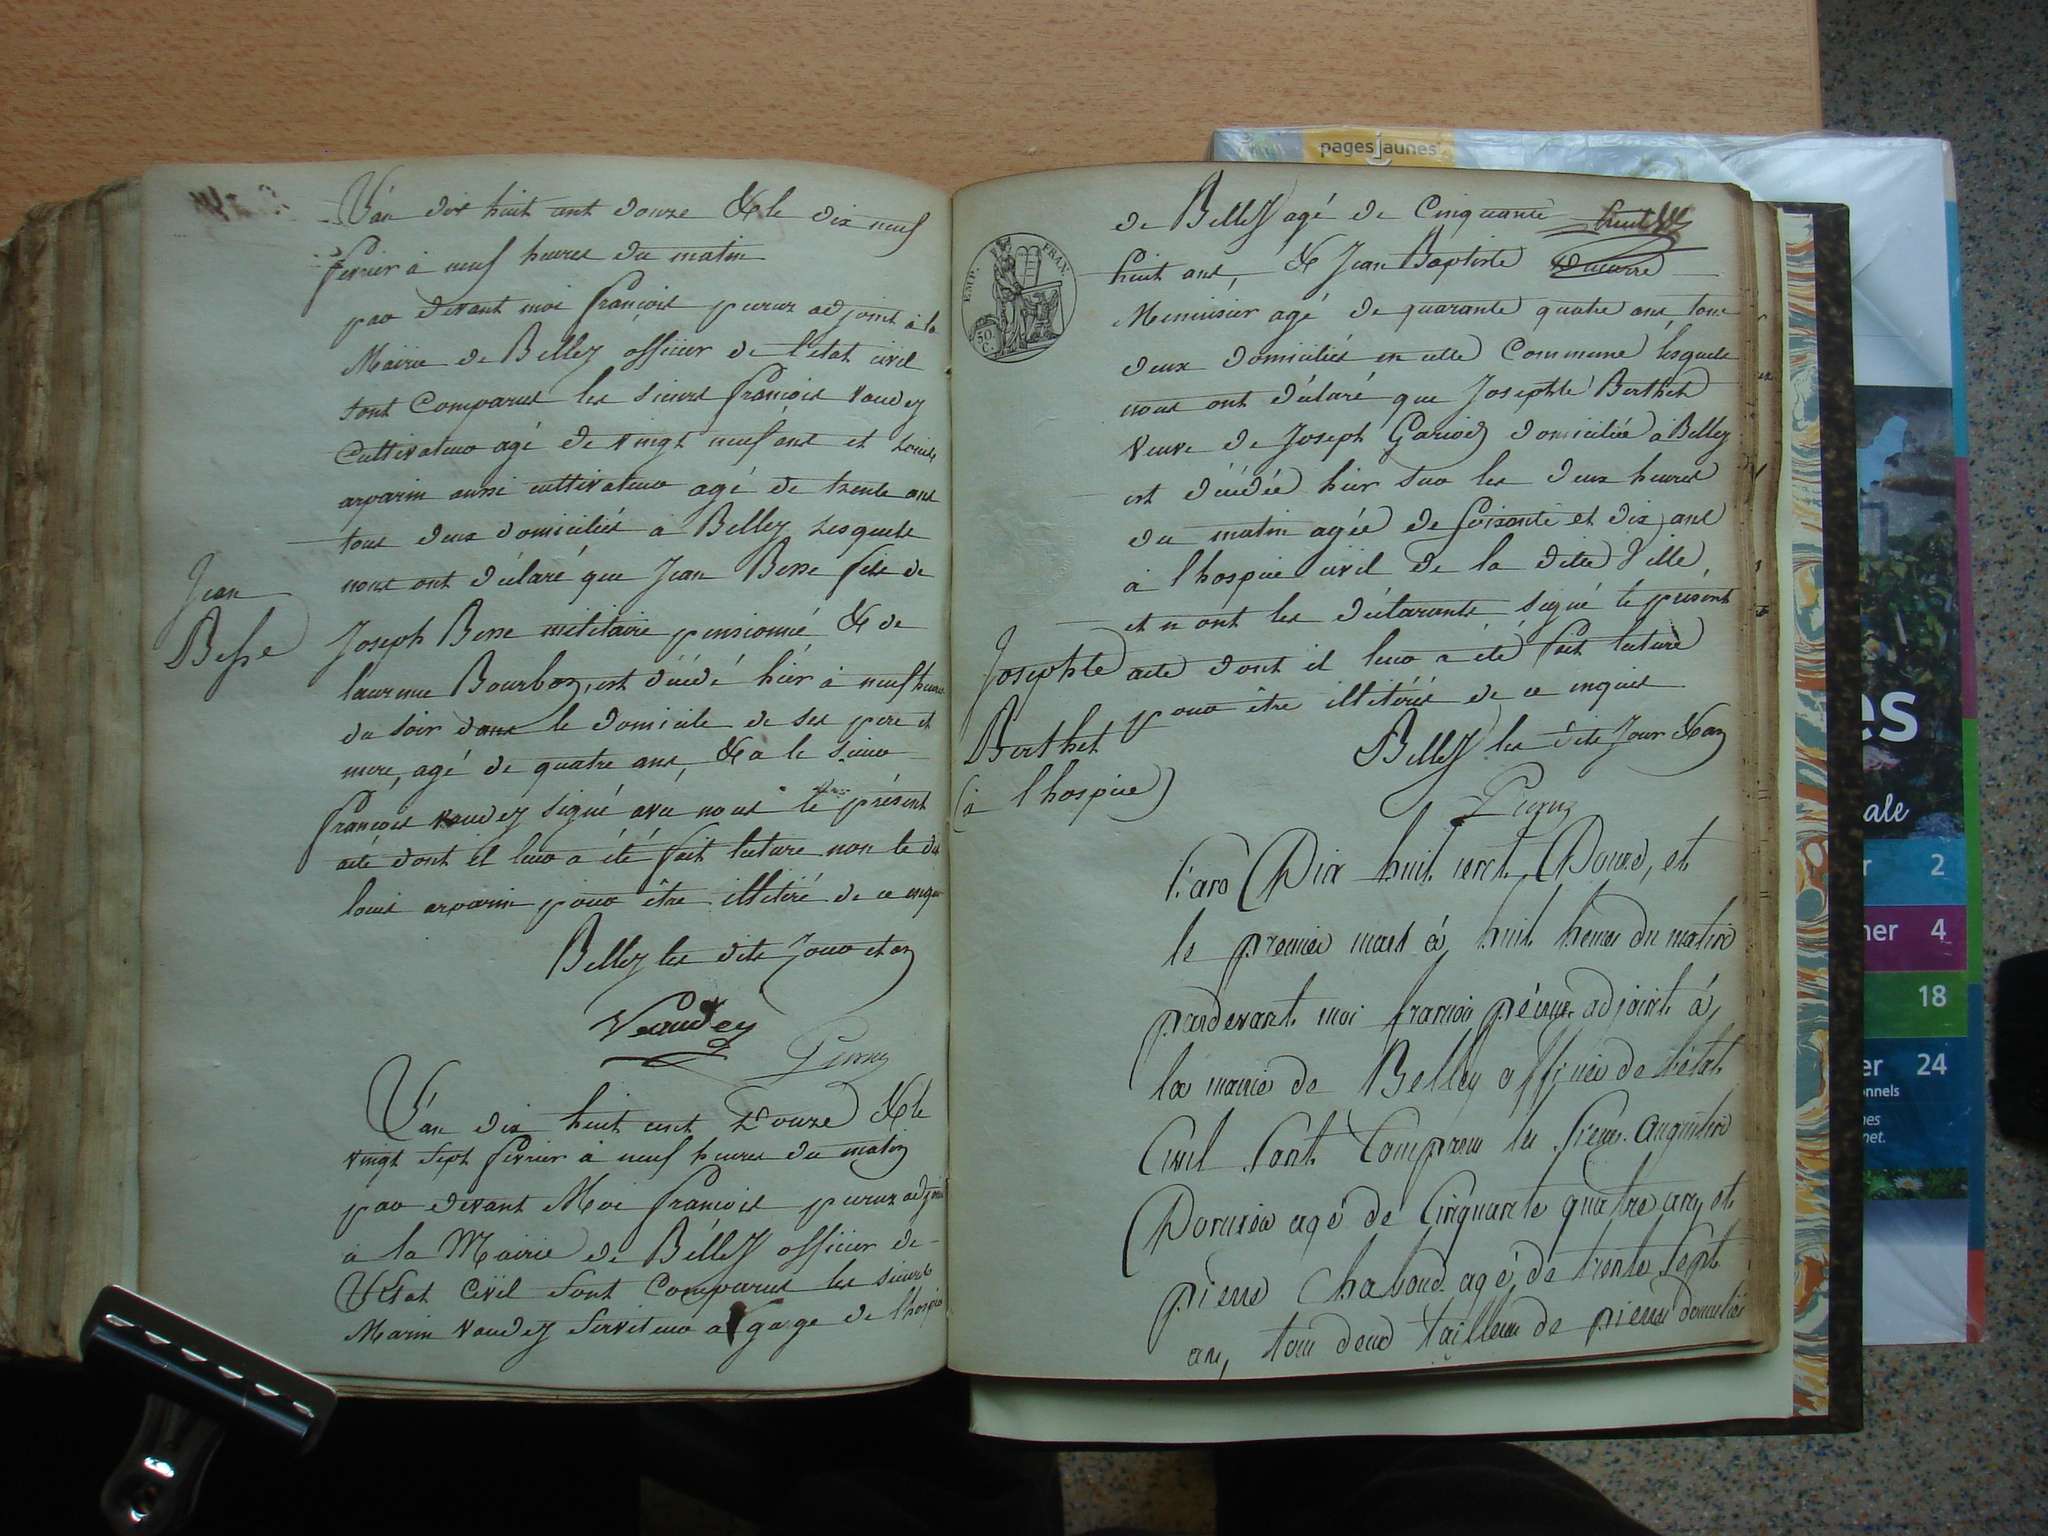 L'an dix huit cent douze & le dix neuf
fevrier à neuf heures du matin
par devant moi françois peruz adjoint à la
Mairie de Belley officier de l'etat civil
sont Comparus les sieurs françois vaudey
Cultivateur agé de vingt neuf ans et Louis
arparin aussi cultivateur agé de trente ans
tous deux domiciliés à Belley Lesquels
nous ont déclaré que Jean Besse fils de
Jean
Besse
Joseph Besse militaire pensionné & de
laurence Bourbon, est décédé hier à neuf heures
du soir dans le domicile de ses pere et
mere, agé de quatre ans, & a le sieur
françois vaudey signé avec nous le présent
acte dont il leur a été fait lecture non le dit
louis arparin pour être illitéré de ce enquis
Belley les dits Jour et an
Vaudey
L'an dix huit cent Douze & le
vingt sept fevrier à neuf heures du matin
par devant Moi françois peruz adjoint
à la Mairie de Belley officier de
l'Etat Civil sont Comparus les sieurs
Marin vaudey serviteur a gage de l'hospice
EMP. FRAN.
50 C.
de Belley agé de Cinquante
huit ans, & Jean Baptiste
Menuisier agé de quarante quatre ans tous
deux domiciliés en cette Commune, lesquels
nous ont déclaré que Josephte Berthet
veuve de Joseph Gariod domiciliée à Belley
est décédée hier sur les deux heures
du matin agée de soixante et dix ans
à l'hospice civil de la ditte Ville,
et n'ont les déclarants signé le présent
acte dont il leur a été fait lecture
pour être illitérés de ce enquis
Belley les dits Jour & an
Josephte
Berthet
(à l'hospice)
L'an Dix huit cent Douze, et
le premier mars à huit heures du matin
pardevant moi françois péruz adjoint à
la mairie de Belley officier de l'état
Civil sont Comparus les sieurs augustin
agé de Cinquante quatre ans et
pierre Chaboud agé de trente sept
ans, tous deux tailleurs de pierre domiciliés
pagesjaunes
es
ale
2
4
18
24